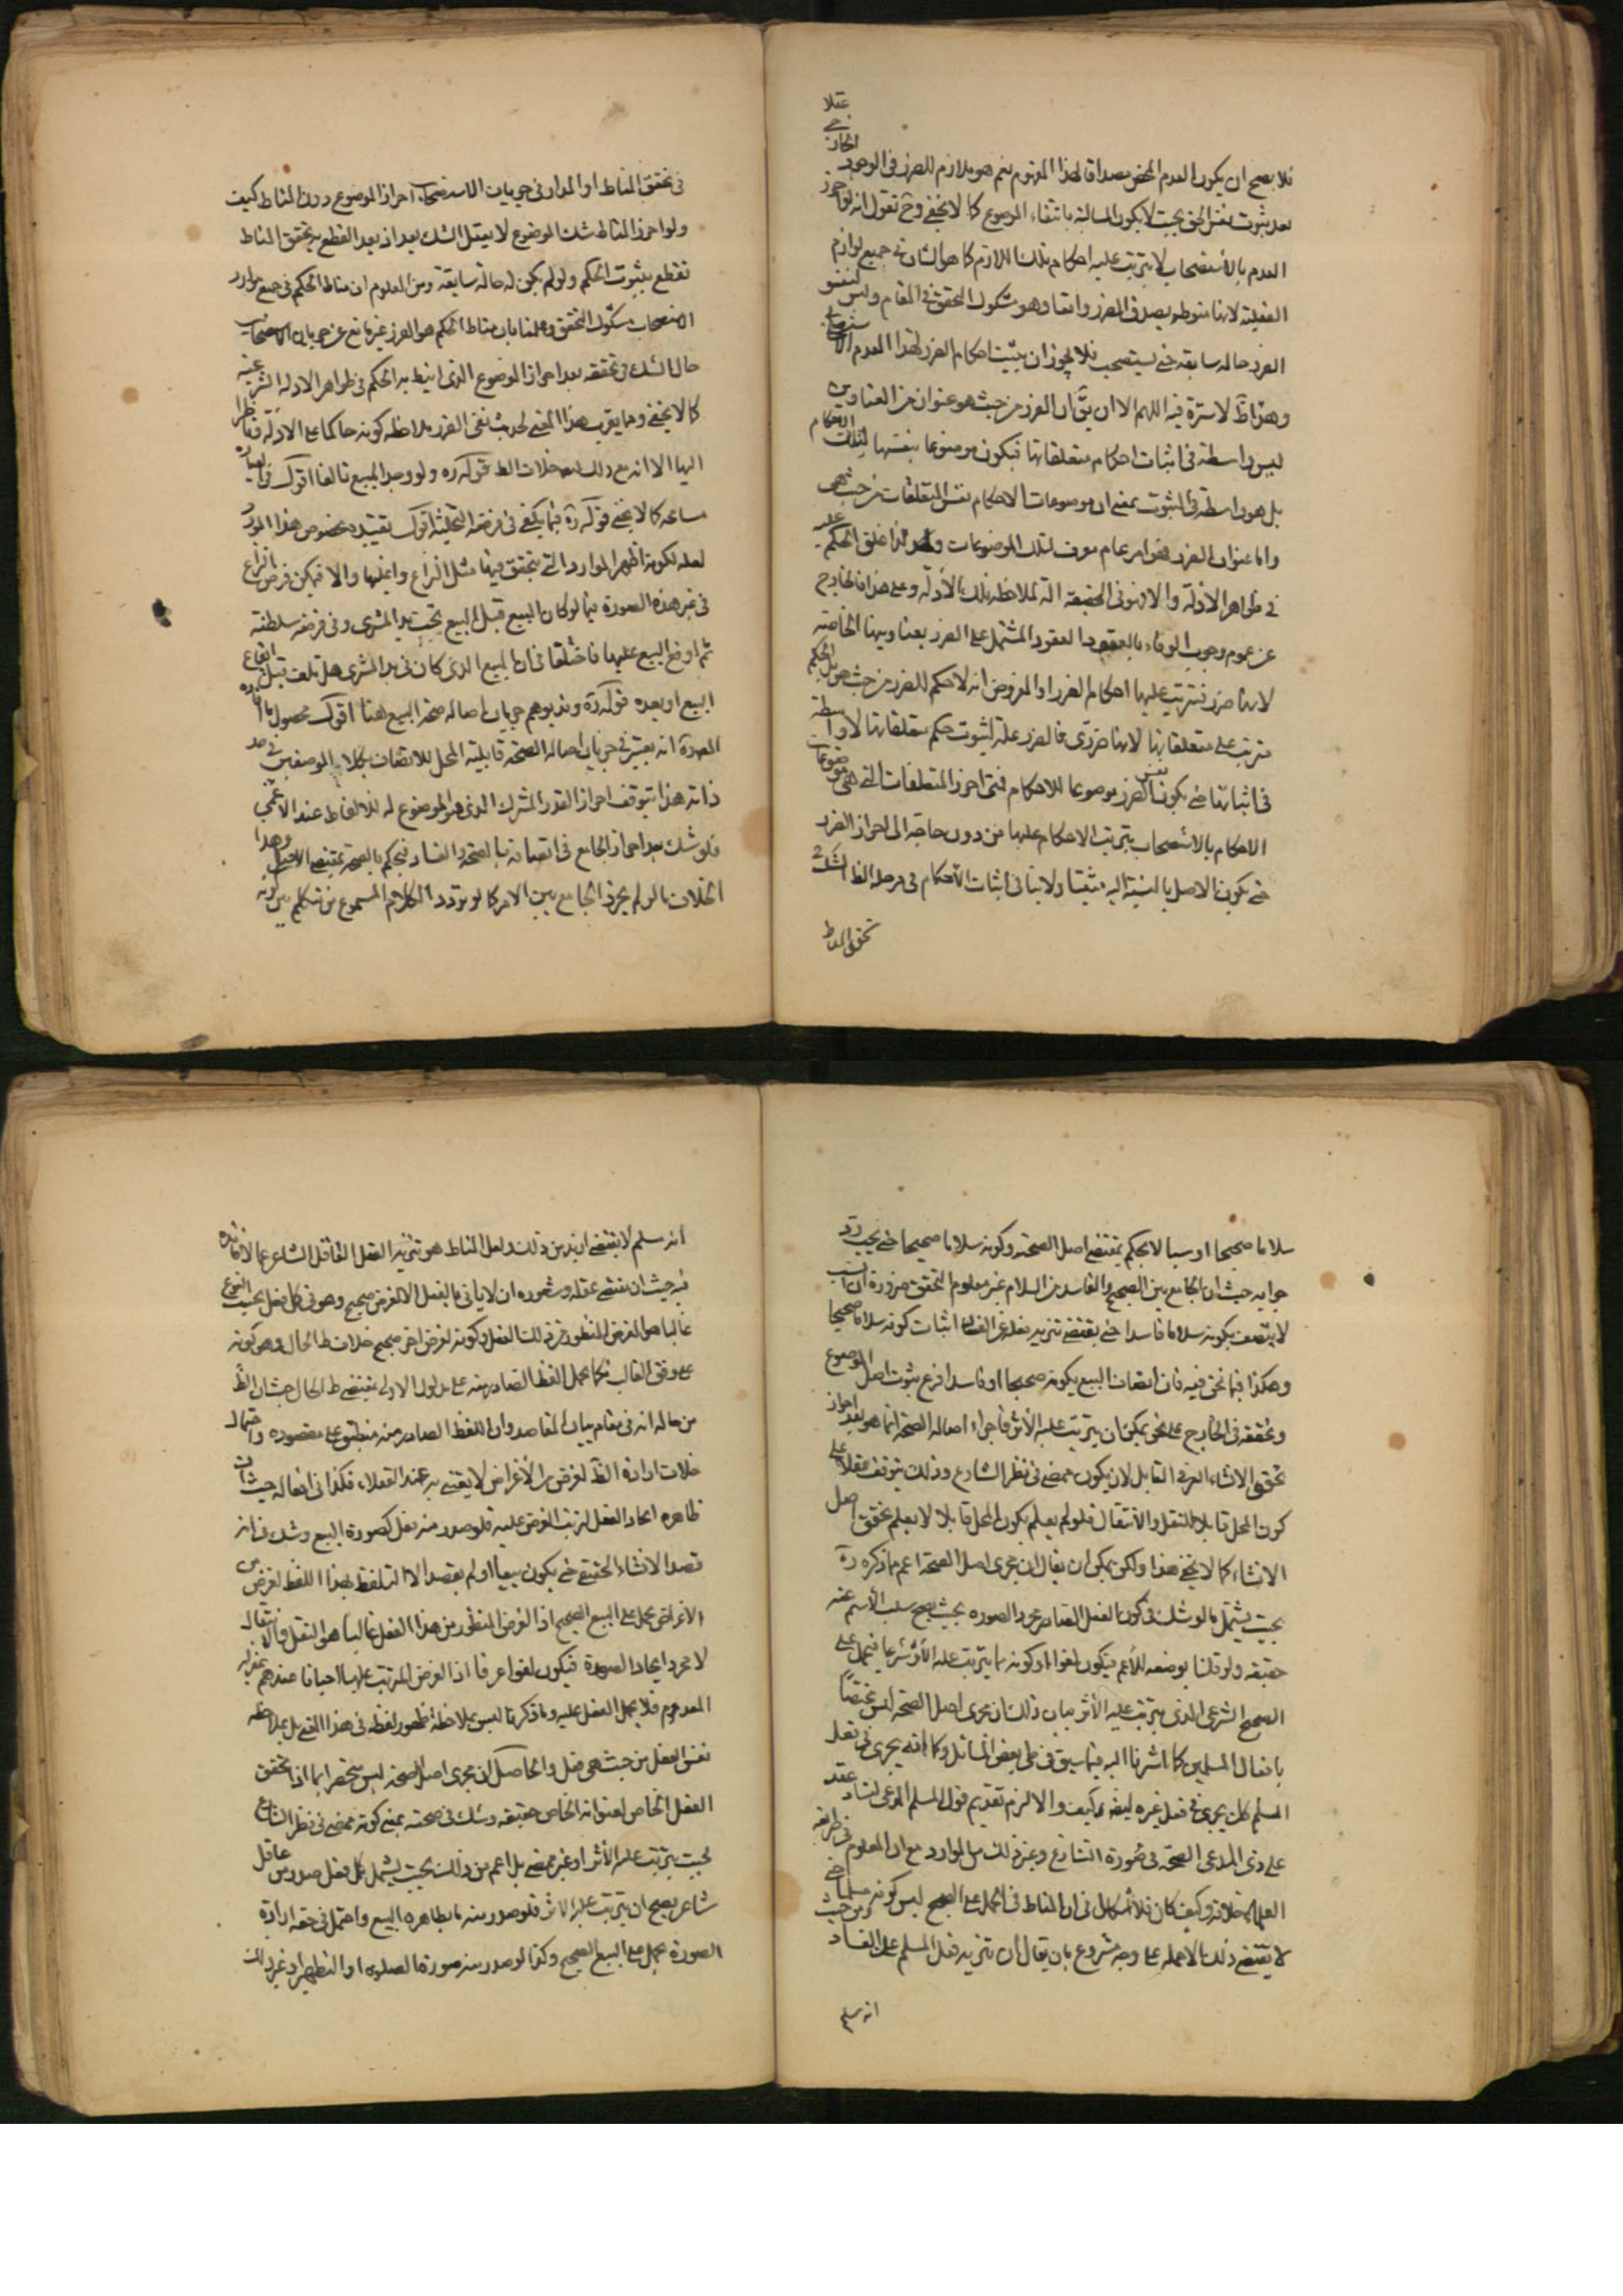 فلا يصح ان يكون العدم المحض مصداقا لهذا المفهوم نعم هو ملازم للضرر فى الوجود الخارجى عقلا
بعد ثبوت نفس الحق بحيث لا يكون السالبة بانتفاء الموضوع كما لا يخفى وح نقول انه لو احرز
العدم بالاستصحاب لا يترتب عليه احكام تلك اللازم كما هو الشان فى جميع لوازم
العقلية لانها منوطة بصدق الضرر واقعا وهو مشكوك التحقق فى المقام وليس لنفس
الضرر حالة سابقة حتى يستصحب فلا يجوز ان يثبت احكام الضرر لهذا العدم الاستصحابى
وهذا ظ لا سترة فيه اللهم الا ان يق ان الضرر من حيث هو عنوان من العناوين
ليس واسطة فى اثبات احكام متعلقاتها فيكون موضوعا بنفسها لتلك الاحكام
بل هو واسطة فى الثبوت بمعنى ان موضوعات الاحكام نفس المتعلقات من حيث هى
واما عنوان الضرر فهو امر عام معرف لتلك الموضوعات ولذا علق الحكم عليه
فى ظواهر الادلة والا فهو فى الحقيقة الة لملاحظة تلك الادلة وعلى هذا فالخارج
عن عموم وجوب الوفاء بالعقود العقود المشتمل على الضرر بعناوينها الخاصة
لانها ضرر فتترتب عليها احكام الضرر اذ المفروض انه لا حكم للضرر من حيث هو بل الحكم
مترتب على متعلقاتها لانها ضررى فالضرر علة لثبوت حكم متعلقاتها لا واسطة
فى اثباتها حتى يكون نفس الضرر موضوعا للاحكام فمتى احرز المتعلقات التى هى موضوعات
الاحكام بالاستصحاب يترتب الاحكام عليها من دون حاجة الى احراز الضرر
حتى يكون الاصل بالنسبة اليه مثبتا ولا ينافى اثبات الاحكام فى مرحلة الظ الشك فى
تحقق المناط
فى تحقق المناط اذ المدار فى جريان الاستصحاب احراز الموضوع دون المناط كيف
ولو احرز المناط شك الموضوع لا يعقل الشك بعد اذ بعد القطع بتحقق المناط
نقطع بثبوت الحكم ولو لم يكن له حالة سابقة ومن المعلوم ان مناط الحكم فى جميع موارد
الاستصحاب مشكوك التحقق وعلمنا بان مناط الحكم هو الضرر غير مانع عن جريان الاستصحاب
حال الشك فى تحققه بعد احراز الموضوع الذى انيط به الحكم فى ظواهر الادلة الشرعية
كما لا يخفى ومما يقرب هذا المعنى لحديث نفى الضرر ملاحظة كونه حاكما على الادلة ناظرا
اليها الا انه مع ذلك بعد خلاف الظ قوله ره ولو وجد المبيع تالفا اقول فى العبارة
مسامحة كما لا يخفى قوله ره فيما يكفى فى قبضه التخلية اقول تقييده بخصوص هذا المورد
لعله لكونه اظهر الموارد التى يتحقق فيها مثل النزاع واغلبها والا فيمكن فرض النزاع
فى غير هذه الصورة فيما لو كان المبيع قبل البيع تحت يد المشترى وفى قبضه سلطنته
ثم اوقع البيع عليها فاختلفا فى ان المبيع الذى كان فى يد المشترى هل تلف قبل ايقاع
البيع او بعده قوله ره وقد يوهم جريان اصالة صحة البيع هنا اقول محصول ما افاده
المص ره انه يعتبر فى جريان اصالة الصحة قابلية المحل للاتصاف بكلا الوصفين فى حد
ذاته هذا يتوقف احراز القدر المشترك الذى هو الموضوع له للالفاظ عند الاعمى
فلو شك بعد احراز الجامع فى اتصافه بالصحة والفساد فيحكم بالصحة بمقتضى الاصل وهذا
بخلاف ما لو لم يحرز الجامع بين الامر كما لو تردد الكلام المسموع من متكلم بين كونه
سلاما صحيحا او سبا لا يحكم بمقتضى اصل الصحة وكونه سلاما صحيحا حتى يجب رد
جوابه حيث ان الجامع بين الصحيح والفاسد من السلام غير معلوم التحقق ضرورة ان السب
لا يتصف بكونه سلاما فاسدا حتى يقتضى تنزيه فعله عن الفساد اثبات كونه سلاما صحيحا
وهكذا فيما نحن فيه فان اتصاف البيع بكونه صحيحا او فاسدا فرع ثبوت اصل الموضوع
وتحققه فى الخارج على نحو يمكن ان يترتب عليه الاثر فاجراء اصالة الصحة انما هو بعد احراز
تحقق الانشاء العرفى القابل لان يكون ممضى فى نظر الشارع وذلك يتوقف عقلا على
كون المحل قابلا للنقل والانتقال فلو لم يعلم بكون المحل قابلا لا يعلم تحقق اصل
الانشاء كما لا يخفى هذا ولكن يمكن ان يقال ان مجرى اصل الصحة اعم مما ذكره ره
بحيث يشتمل ما لو شك فى كون الفعل الصادر مجرد الصورة بحيث يصح سلب الاسم عنه
حقيقة ولو قلنا بوضعه للاعم فيكون لغوا او كونه مما يترتب عليه الاثر شرعا فيحمل على
الصحيح الشرعى الذى يترتب عليه الاثر بيان ذلك ان مجرى اصل الصحة ليس مختصا
بافعال المسلمين كما اشرنا اليه فيما سبق فى طى بعض المسائل وكما انه يجرى فى فعل
المسلم كان يجرى فى فعل غيره ايضا كيف والا لزم تقديم قول المسلم المدعى لفساد عقد
على ذى المدعى الصحة فى صورة التنازع وغير ذلك من الموارد مع ان المعلوم من طريقة
العلماء خلافه وكيف كان فلا اشكال فى ان المناط فى الحمل على الصحيح ليس كونه مسلما حتى
لا يقتضى ذلك الا حمله على وجه مشروع بان يقال ان تنزيه فعل المسلم على الفساد من حيث
انه مسلم
انه مسلم لا يقتضى ازيد من ذلك ولعل المناط هو تنزيه الفعل العاقل الشاعر عما لا فائدة
فيه حيث ان مقتضى عقله وشعوره ان لا ياتى بالفعل الا لغرض صحيح وهو فى كل فعل بحسب النوع
غالبا هو الغرض المنظور من ذلك الفعل وكونه لغرض اخر صحيح خلاف ظ الحال وهو كونه
على وفق الغالب فكما يحمل اللفظ الصادر منه على مدلول الاولى بمقتضى ظ الحال حيث ان الظ
من حاله انه فى مقام بيان المقاصد وان اللفظ الصادر منه منطبق على مقصوده واحتمال
خلاف ارادة الظ لغرض من الاغراض لا يعتنى به عند العقلاء فكذا فى افعاله حيث ان
ظاهره ايجاد الفعل لترتب الغرض عليه فلو صدر منه فعل كصورة البيع وشك فى انه
قصد الانشاء الحقيقى حتى يكون بيعا او لم يقصد الا التلفظ بهذا اللفظ لغرض من
الاغراض يحمل على البيع الصحيح اذ الغرض المنظور من هذا الفعل غالبا هو النقل والانتقال
لا مجرد ايجاد الصورة فيكون لغوا عرفا اذ الغرض المترتب عليها احيانا عندهم بمنزلة
المعدوم فلا يحمل الفعل عليه وما ذكرنا ليس بملاحظة ظهور لفظه فى هذا المعنى بل بملاحظة
نفس الفعل من حيث هى فعل والحاصل ان مجرى اصل الصحة ليس منحصرا بما اذا تحقق
الفعل الخاص لعنوانه الخاص حقيقة وشك فى صحته بمعنى كونه ممضى فى نظر الشارع
بحيث يترتب عليه الاثر او غير ممضى بل اعم من ذلك بحيث يشمل كل فعل صدر من عاقل
شاعر يصح ان يترتب عليه الاثر فلو صدر منه ما بظاهره البيع واحتمل فى حقه ارادة
الصورة يحمل على البيع الصحيح وكذا لو صدر منه صورة الصلوة او التطهير او غير ذلك